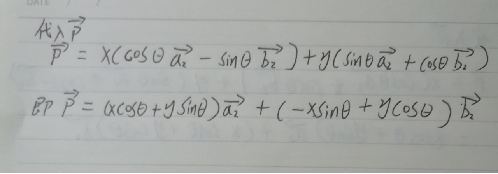 代入 $\vec{P}$
$\vec{P} = x(\cos\theta \vec{a_2} - \sin\theta \vec{b_2}) + y(\sin\theta \vec{a_2} + \cos\theta \vec{b_2})$
即 $\vec{P} = (x\cos\theta + y\sin\theta)\vec{a_2} + (-x\sin\theta + y\cos\theta)\vec{b_2}$